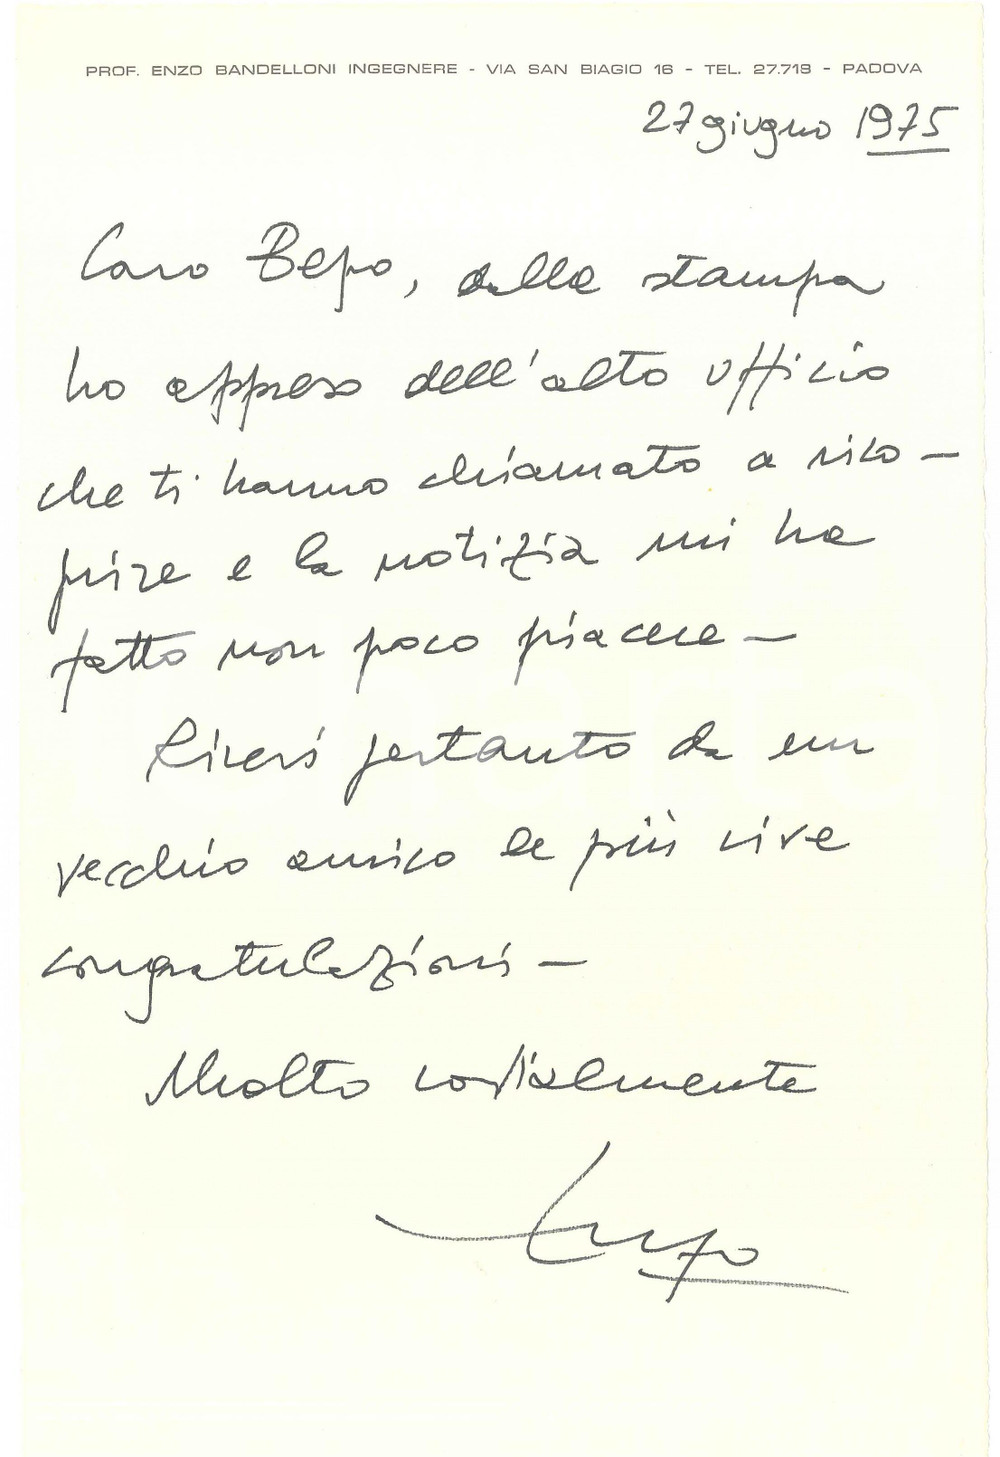 PROF. ENZO BANDELLONI INGEGNERE - VIA SAN BIAGIO 16 - TEL. 27.718 - PADOVA
27 giugno 1975
Caro Bepo, dalla stampa
ho appreso dell'alto ufficio
che ti hanno chiamato a rico-
prire e la notizia mi ha
fatto non poco piacere -
Ricevi pertanto da un
vecchio amico le più vive
congratulazioni -
Molto cordialmente
Enzo